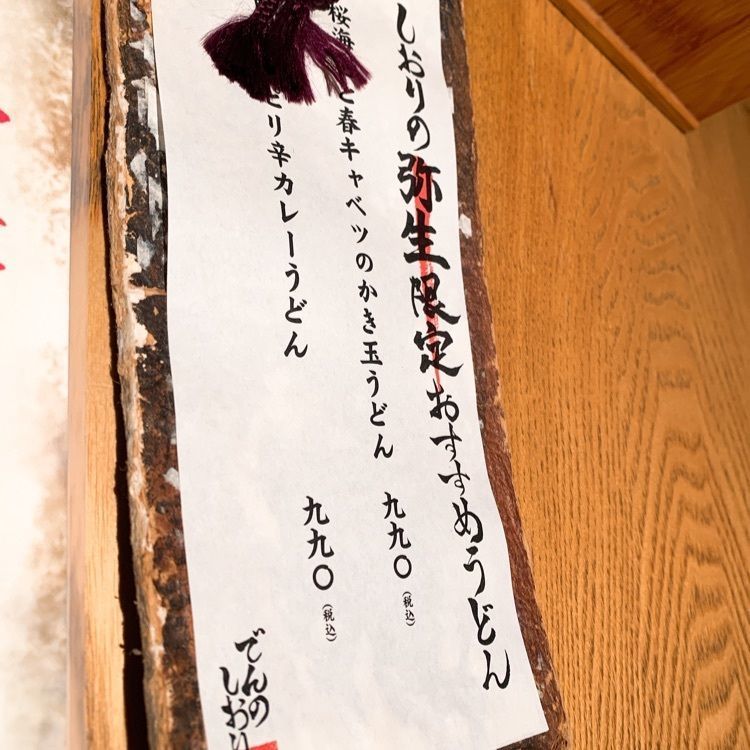 しおりの弥生限定おすすめうどん
桜海 と春キャベツのかき玉うどん 九九〇（税込）
ピリ辛カレーうどん 九九〇（税込）
でんの
しおり